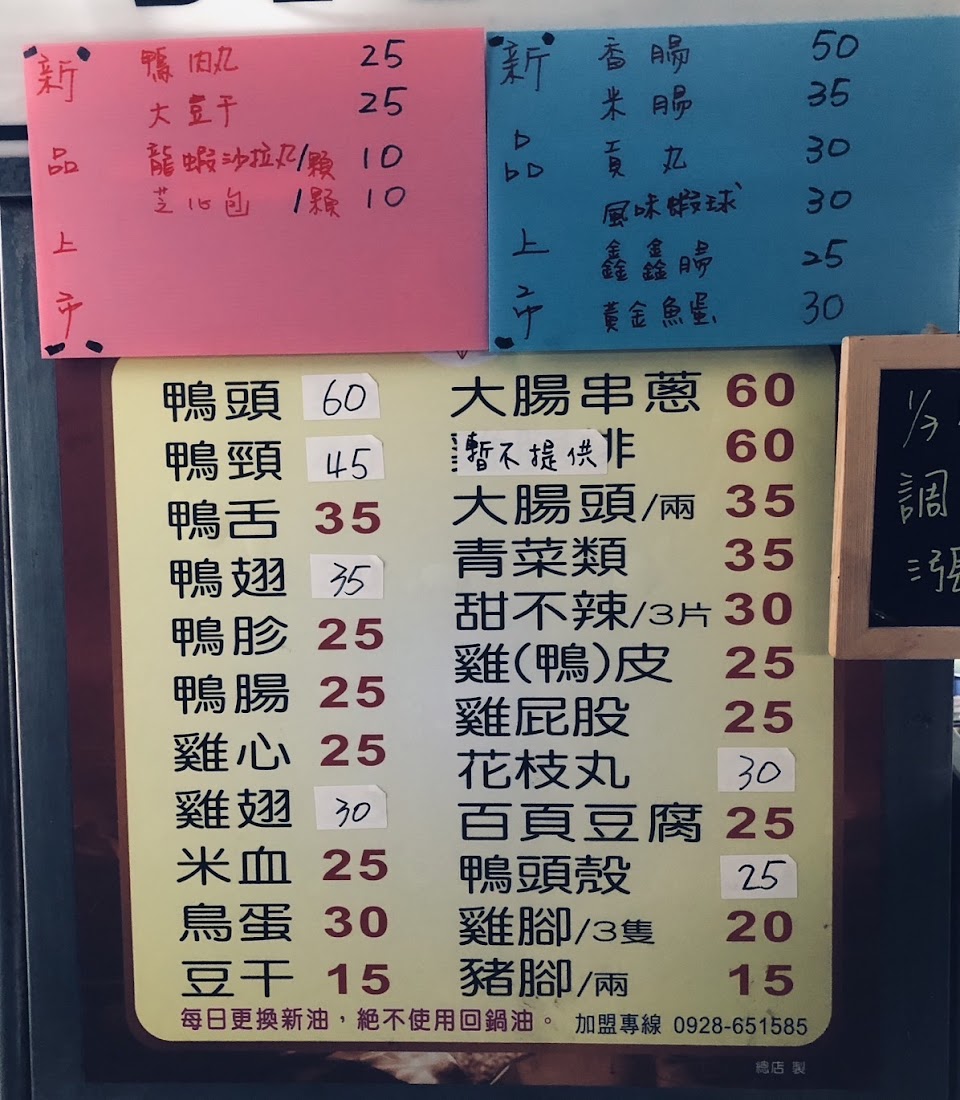 新品上市
鴨肉丸 25
大豆干 25
龍蝦沙拉丸/顆 10
芝心包 /顆 10
新品上市
香腸 50
米腸 35
貢丸 30
風味蝦球 30
鑫鑫腸 25
黃金魚蛋 30
鴨頭 60
鴨頸 45
鴨舌 35
鴨翅 35
鴨胗 25
鴨腸 25
雞心 25
雞翅 30
米血 25
鳥蛋 30
豆干 15
大腸串蔥 60
暫不提供 排 60
大腸頭/兩 35
青菜類 35
甜不辣/3片 30
雞(鴨)皮 25
雞屁股 25
花枝丸 30
百頁豆腐 25
鴨頭殼 25
雞腳/3隻 20
豬腳/兩 15
每日更換新油，絕不使用回鍋油。 加盟專線 0928-651585
總店 製
1/3
調
漲